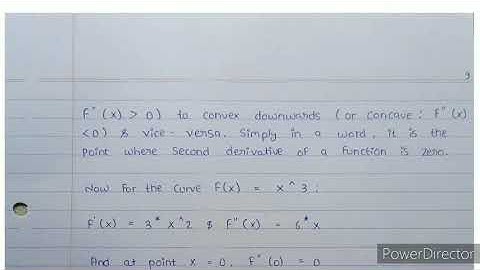 9
F"(x) > 0) to convex downwards (or concave: F"(x)
<0) & vice-versa. Simply in a word, it is the
point where second derivative of a function is zero.
Now for the curve F(x) = x^3:
F'(x) = 3*x^2 & F"(x) = 6*x
And at point x = 0, F"(0) = 0
PowerDirector